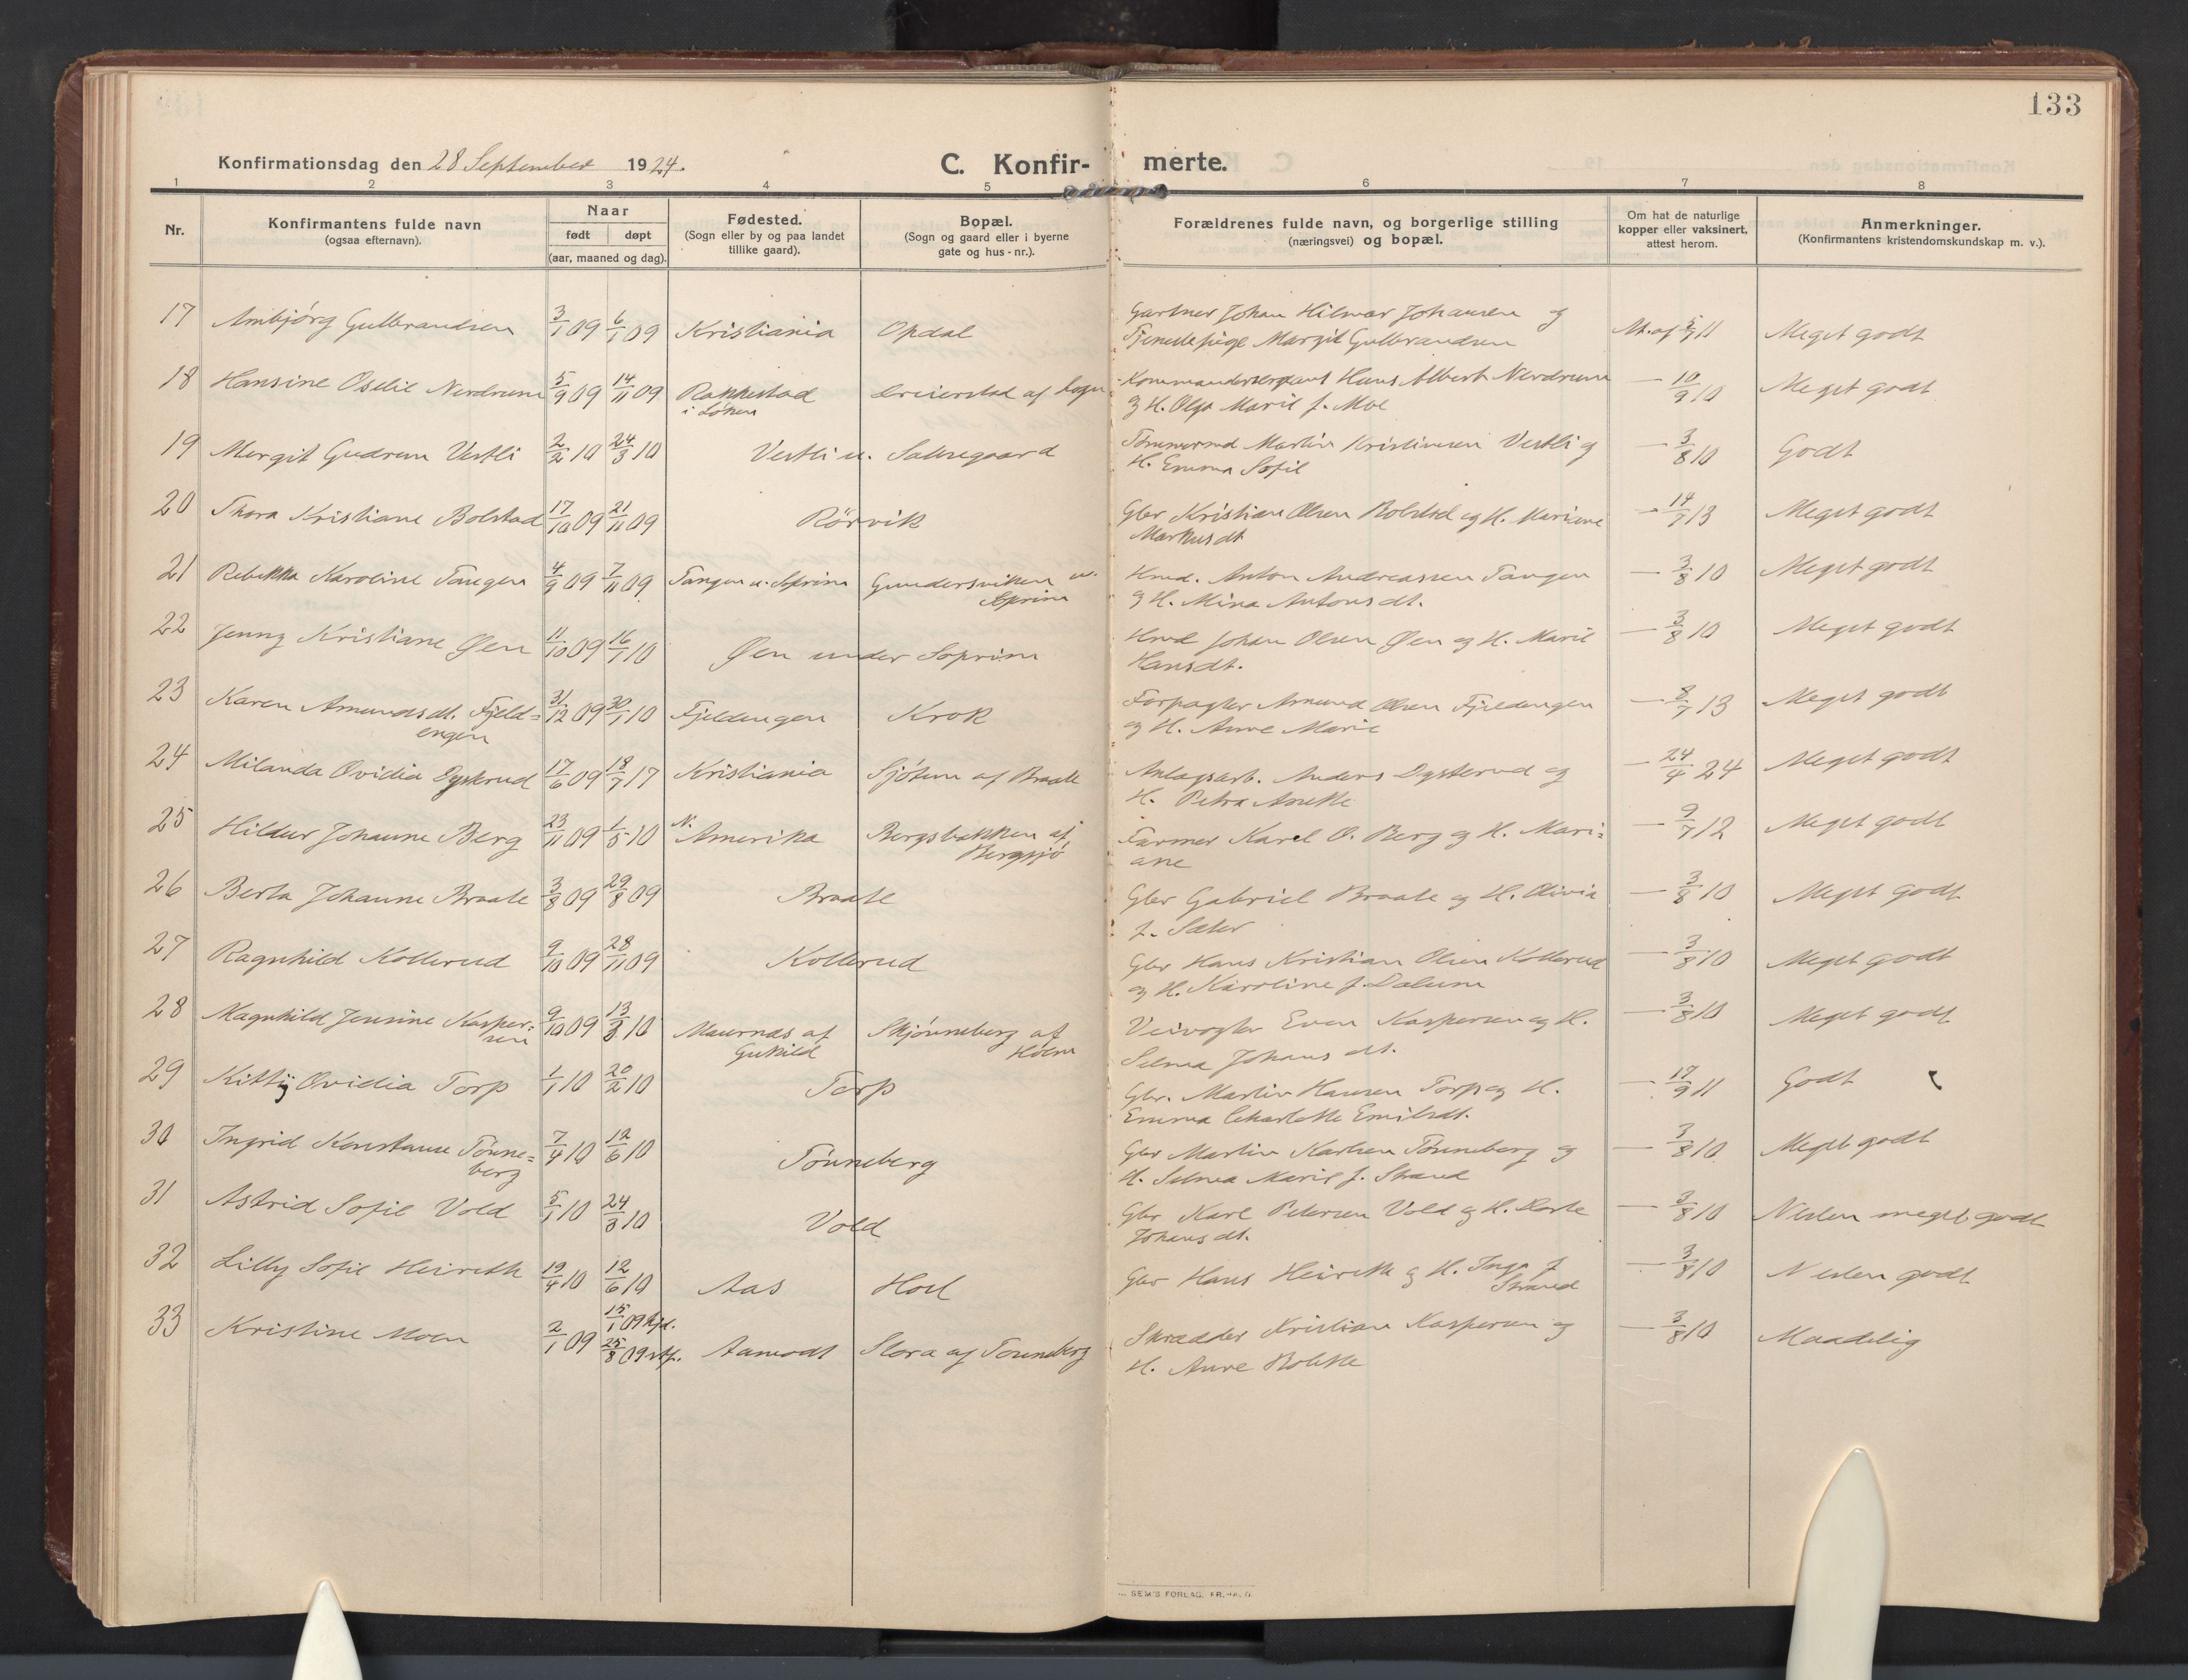 133
Konfirmationsdag den 28 September 1924.
C. Konfir- merte.
1 2 3 4 5 6 7 8
Nr.
Konfirmantens fulde navn
(ogsaa efternavn).
Naar
født døpt
(aar, maaned og dag).
Fødested.
(Sogn eller by og paa landet
tillike gaard).
Bopæl.
(Sogn og gaard eller i byerne
gate og hus-nr.).
Forældrenes fulde navn, og borgerlige stilling
(næringsvei) og bopæl.
Om hat de naturlige
kopper eller vaksinert,
attest herom.
Anmerkninger.
(Konfirmantens kristendomskundskap m. v.).
17 Ambjörg Gulbrandsen 3/1 09 6/1 09 Kristiania Opdal Gartner Johan Hilmar Johansen og
Tjenestepige Margit Gulbrandsen At. af 5/7 11 Meget godt
18 Hansine Oselie Nerdrum 5/9 09 14/11 09 Rakkestad
i Løken af Sogn Kommandersergeant Hans Albert Nerdrum
og H. Olga Marie f. Moe — 10/9 10 Meget godt
19 Margit Gudrun Vestli 2/2 10 24/3 10 Vestli u. Saksegaard Tømmermd Martin Kristiansen Vestli og
H. Emma Sofie — 3/8 10 Godt
20 Thora Kristiane Bolstad 17/10 09 21/11 09 Rörvik Gbr Kristian Olsen Bolstad og H. Mariane
Markusdt — 14/7 13 Meget godt
21 Rebekka Karoline Tangen 4/9 09 7/11 09 Tangen u. Soprim Gundersviken u.
Soprim Hmd. Anton Andreassen Tangen
og H. Mina Antonsdt. — 3/8 10 Meget godt
22 Jenny Kristiane Øen 11/10 09 16/1 10 Øen under Soprim Hmd Johan Olsen Øen og H. Marie
Hansdt. — 3/8 10 Meget godt
23 Karen Amundsdt. Fjeld=
engen 31/12 09 30/1 10 Fjeldengen Krok Forpagter Amund Olsen Fjeldengen
og H. Anne Marie — 8/7 13 Meget godt
24 Milanda Ovidia Dysterud 17/6 09 18/7 17 Kristiania Sjötun af Braate Anlagsarb. Anders Dysterud og
H. Petra Anette — 24/4 24 Meget godt
25 Hildur Johanne Berg 23/11 09 1/5 10 N. Amerika Bergsbakken af
Bergsjö Farmer Karel O. Berg og H. Mari=
ane — 9/7 12 Meget godt
26 Berta Johanne Braate 3/8 09 29/8 09 Braate Gbr Gabriel Braate og H. Olivia
f. Sæter — 3/8 10 Meget godt
27 Ragnhild Kollerud 9/10 09 28/11 09 Kollerud Gbr Hans Kristian Olsen Kollerud
og H. Karoline f. Dalum — 3/8 10 Meget godt
28 Magnhild Jensine Kasper=
sen 9/10 09 13/3 10 Maurnes af
Gukild Skjönneberg af
Holm Veivogter Even Kaspersen og H.
Selma Johansdt. — 3/8 10 Meget godt
29 Kitty Ovidia Torp 1/1 10 20/2 10 Torp Gbr. Martin Hansen Torp og H.
Emma Charlotte Emilsdt. — 17/9 11 Godt
30 Ingrid Konstanse Tönne=
berg 7/4 10 12/6 10 Tönneberg Gbr Martin Karlsen Tönneberg og
H. Selma Marie f. Strand — 3/8 10 Meget godt
31 Astrid Sofie Vold 5/1 10 24/3 10 Vold Gbr Karl Petersen Vold og H. Dorte
Johansdt. — 3/8 10 Nesten meget godt
32 Lilly Sofie Heireth 19/4 10 12/6 10 Aas Hoel Gbr Hans Heireth og H. Inga f.
Strand — 3/8 10 Nesten godt
33 Kristine Moen 2/1 09 15/1 09 hjd.
25/8 09 stf. Aamodt Slora af Tönneberg Skrædder Kristian Kaspersen og
H. Anne Bolette — 3/8 10 Maadelig
SEM'S FORLAG. FR.HALD.